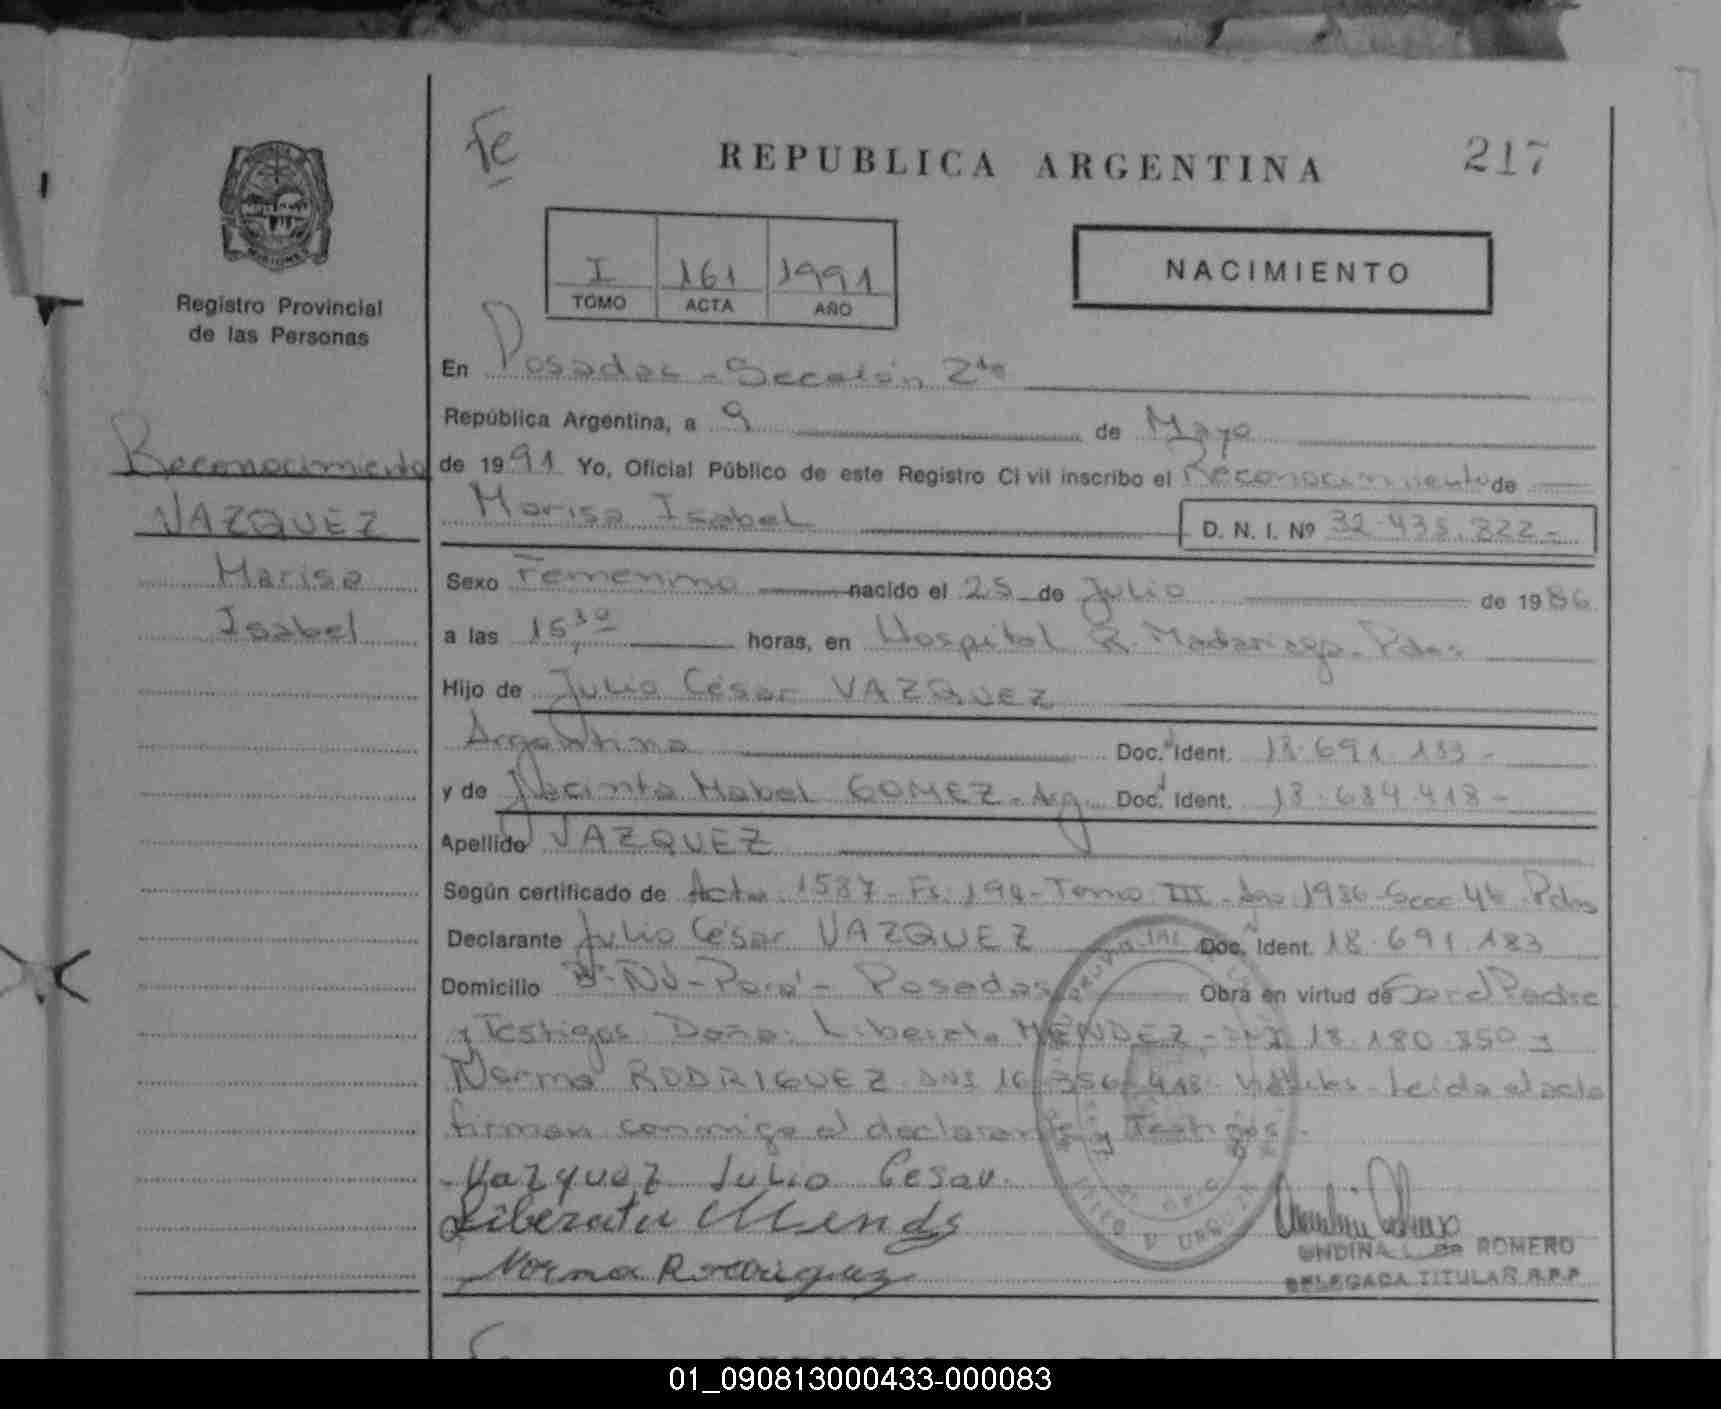 Fe
REPUBLICA ARGENTINA
217
I 161 1991
TOMO ACTA AÑO
NACIMIENTO
Registro Provincial
de las Personas
Reconocimiento
VAZQUEZ
Marisa
Isabel
En Posadas - Sección 2da
República Argentina, a 9 de Mayo
de 1991 Yo, Oficial Público de este Registro Civil inscribo el Reconocimiento de
Marisa Isabel D. N. I. Nº 32.435.322 -
Sexo Femenino nacido el 25 de Julio de 1986
a las 15,30 horas, en Hospital R. Madariaga - Pdas
Hijo de Julio César VAZQUEZ
Argentino Doc. Ident. 18.691.183 -
y de Jacinta Mabel GOMEZ - Arg. Doc. Ident. 18.684.418 -
Apellido VAZQUEZ
Según certificado de Acta: 1587 - Fº: 194 - Tomo III - Año 1986 - Secc 4ta - Pdas
Declarante Julio César VAZQUEZ Doc. Ident. 18.691.183
Domicilio Bº Ñú - Porá - Posadas Obra en virtud de Ser el Padre
y Testigos Doña: Liberata MENDEZ - DNI 18.180.350 y
Norma RODRIGUEZ DNI 16.356.418 Leida el acta
firman conmigo el declarante y Testigos -
Vazquez Julio Cesar
Liberata Mends
Norma Rodriguez
UNDINA de ROMERO
DELEGADA TITULAR R.P.P
01_090813000433-000083